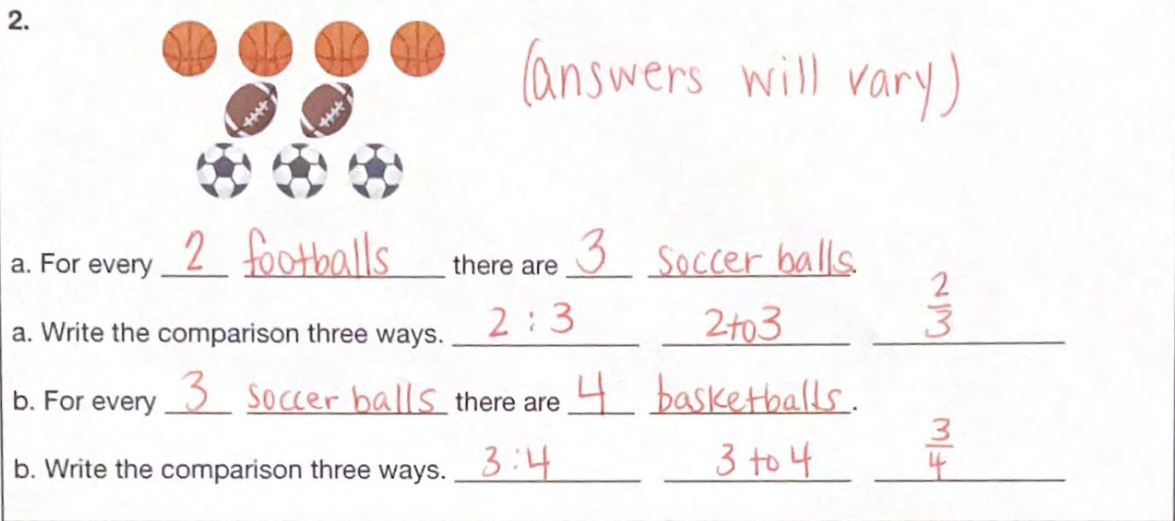 2.
(answers will vary)
a. For every 2 footballs there are 3 soccer balls.
a. Write the comparison three ways. 2 : 3 2 to 3 2/3
b. For every 3 soccer balls there are 4 basketballs.
b. Write the comparison three ways. 3 : 4 3 to 4 3/4